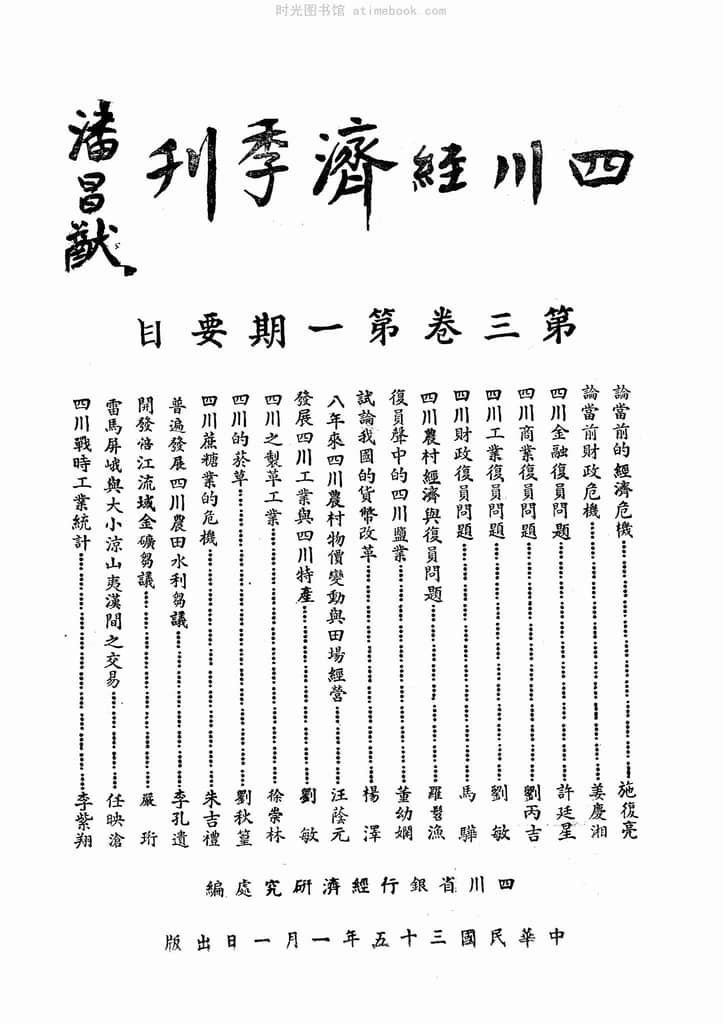 时光图书馆 atimebook.com
四川經濟季刊
潘昌猷
第三卷第一期要目
論當前的經濟危機………施復亮
論當前財政危機………姜慶湘
四川金融復員問題………許廷星
四川商業復員問題………劉丙吉
四川工業復員問題………劉敏
四川財政復員問題………馬驊
四川農村經濟與復員問題………羅髫漁
復員聲中的四川鹽業………董幼嫻
試論我國的貨幣改革………楊澤
八年來四川農村物價變動與田場經營………汪蔭元
發展四川工業與四川特產………劉敏
四川之製革工業………徐崇林
四川的菸草………劉秋篁
四川蔗糖業的危機………朱吉禮
普遍發展四川農田水利芻議………李孔遺
開發涪江流域金礦芻議………嚴珩
雷馬屏峨與大小涼山夷漢間之交易………任映滄
四川戰時工業統計………李紫翔
四川省銀行經濟研究處編
中華民國三十五年一月一日出版